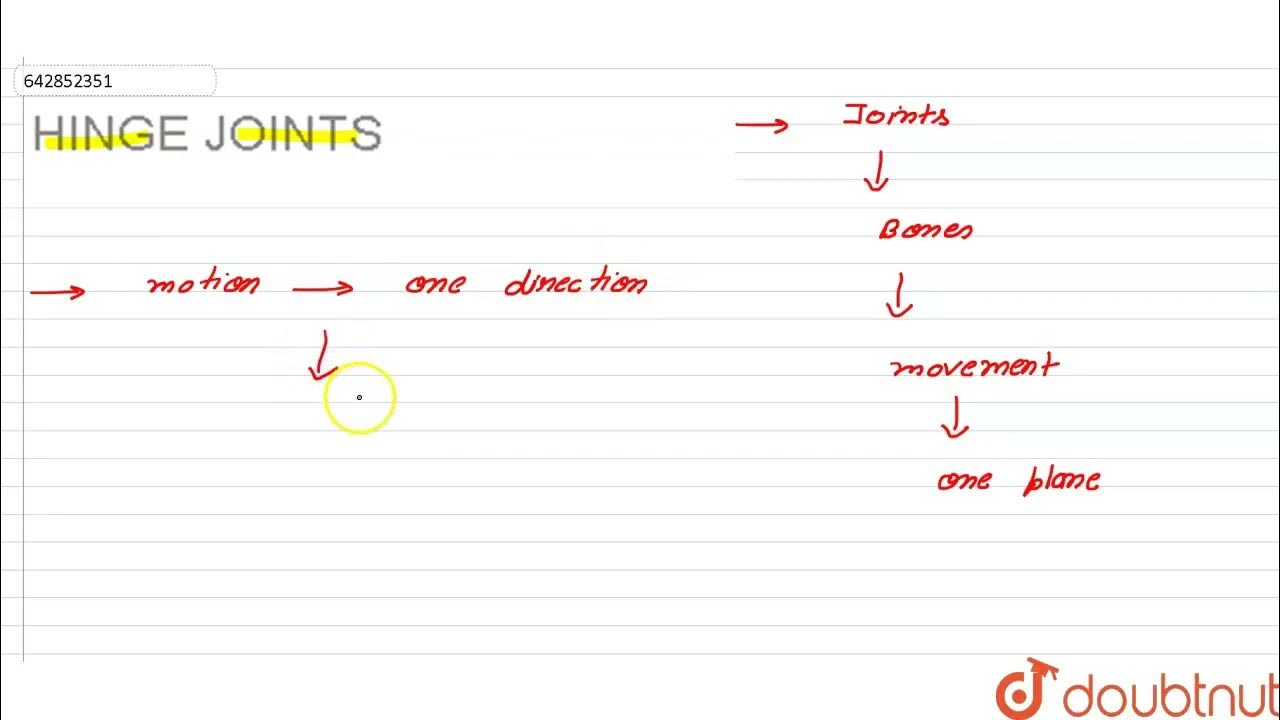 642852351
HINGE JOINTS
→ Joints
↓
Bones
↓
movement
↓
one plane
→ motion → one direction
↓
doubtnut